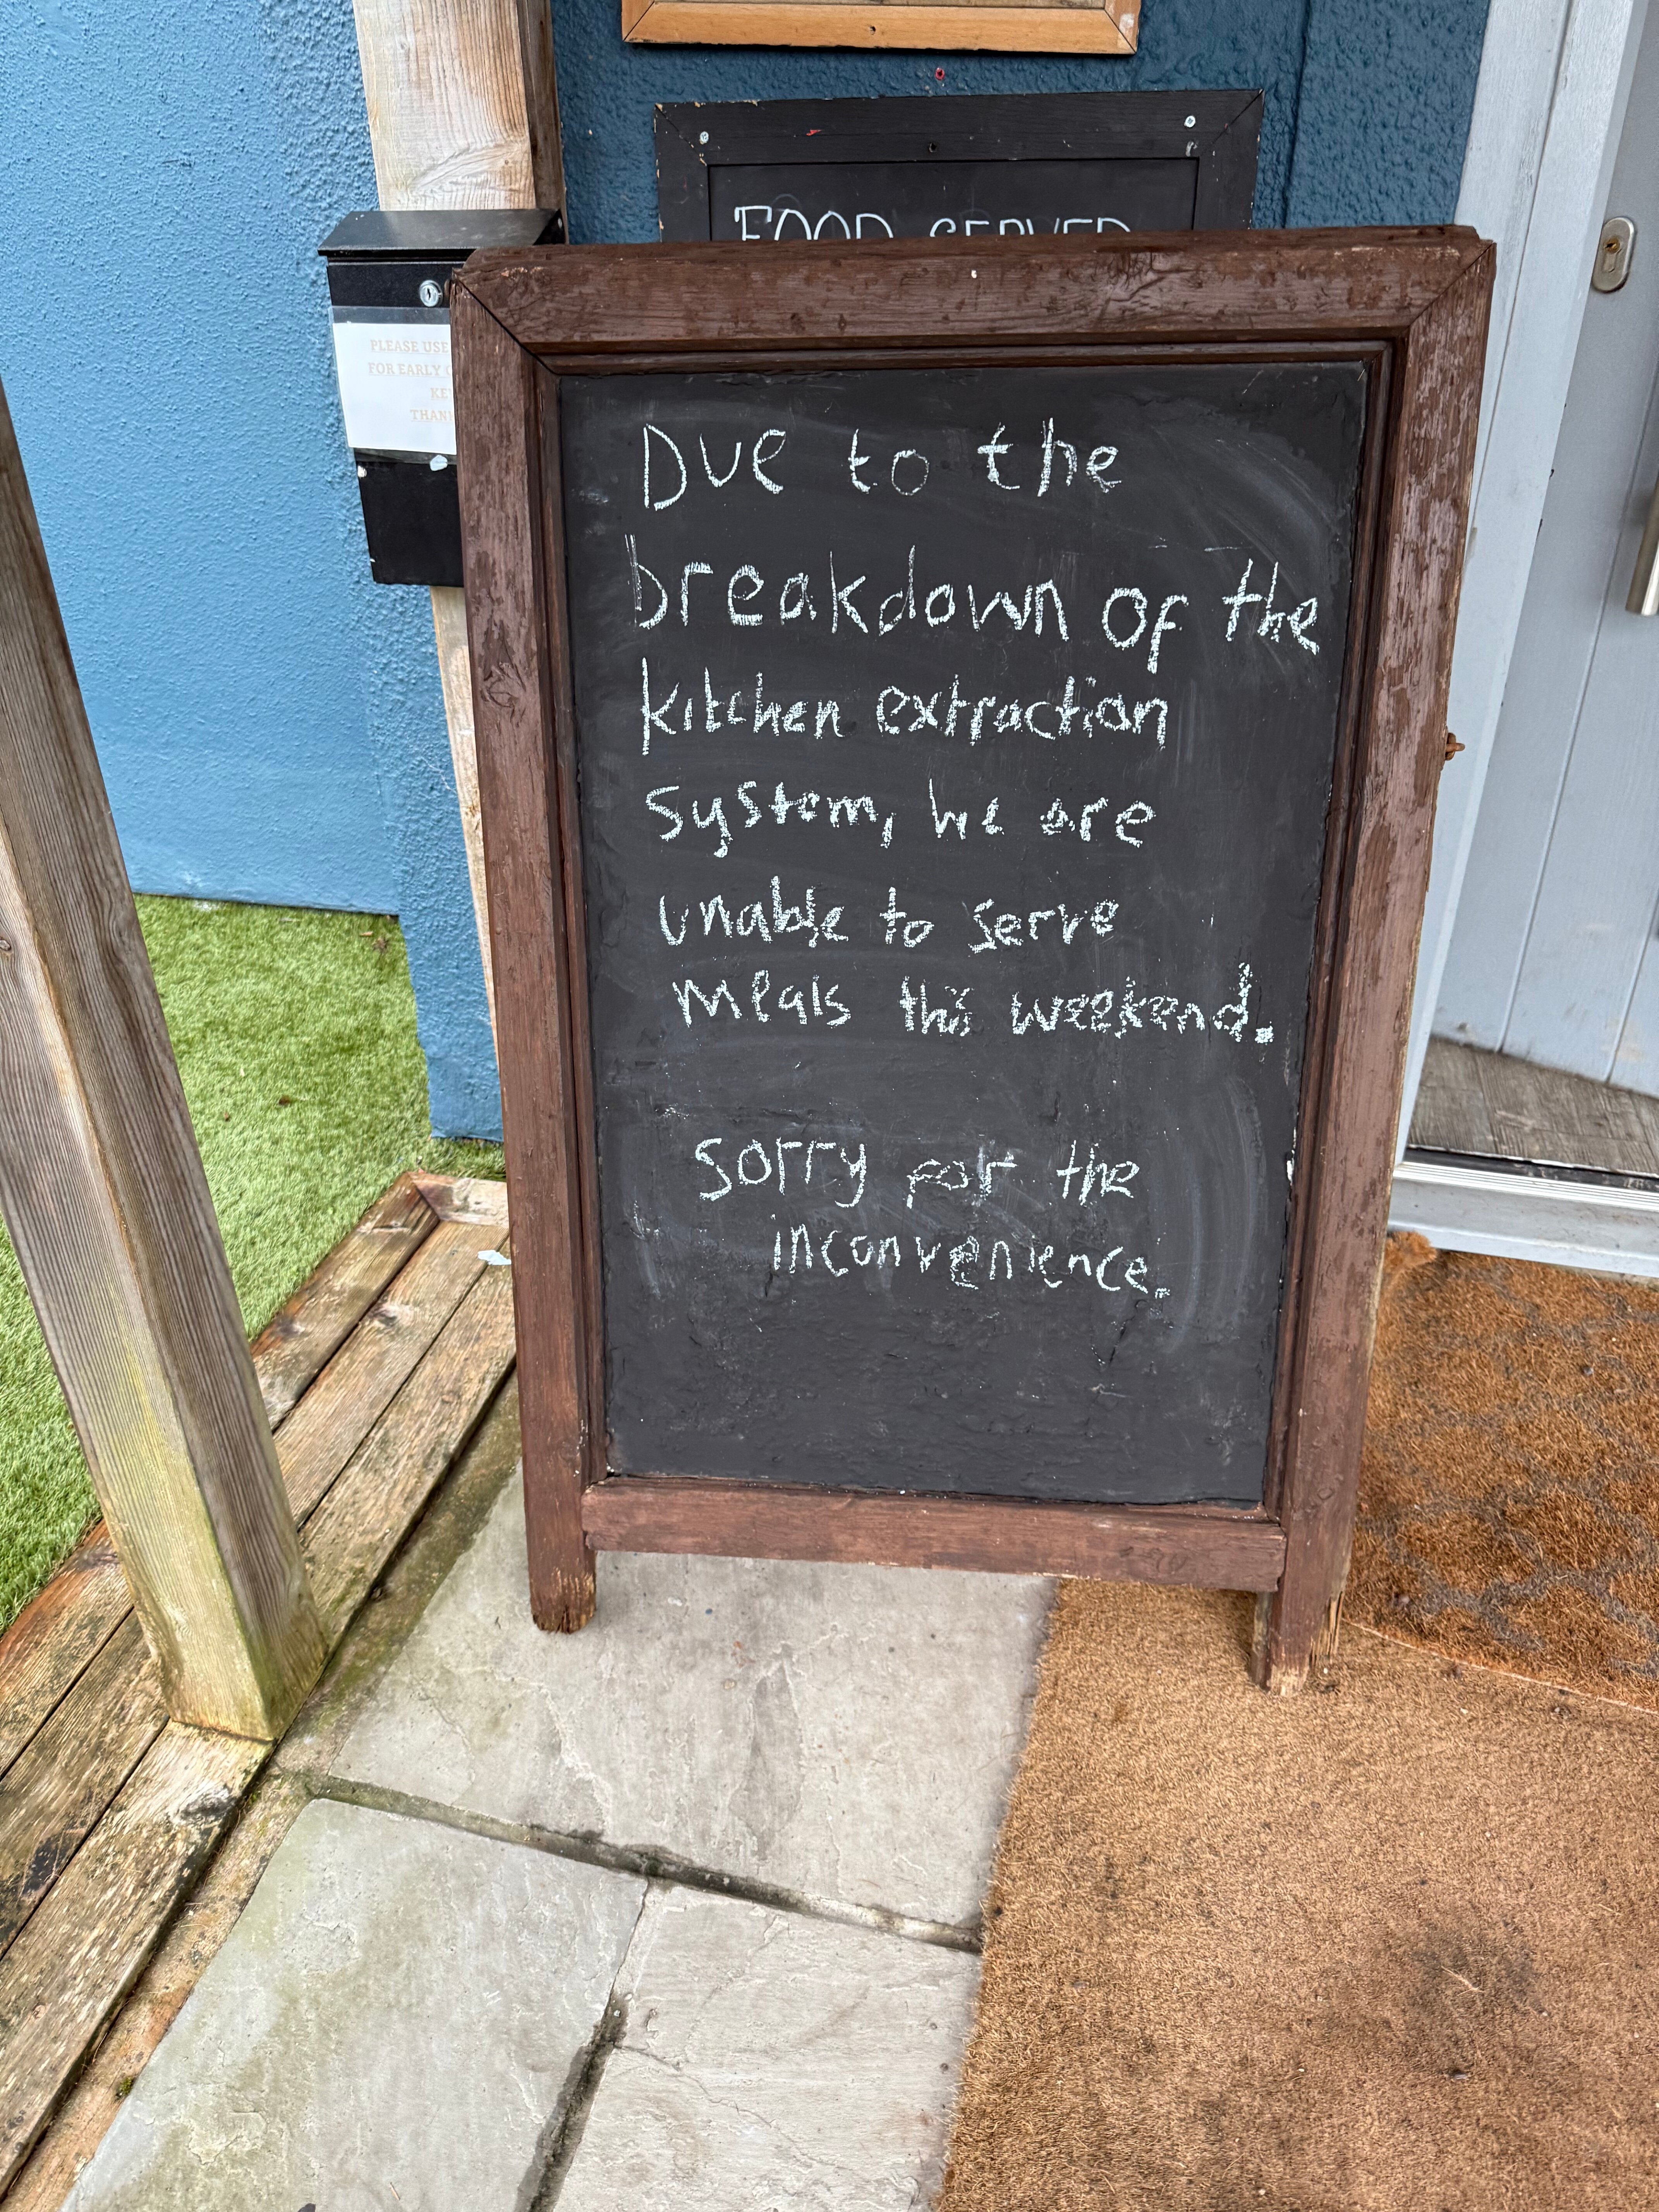 FOOD SERVED
PLEASE USE
FOR EARLY
KE
THAN
Due to the
breakdown of the
kitchen extraction
system, we are
unable to serve
meals this weekend.
Sorry for the
inconvenience.